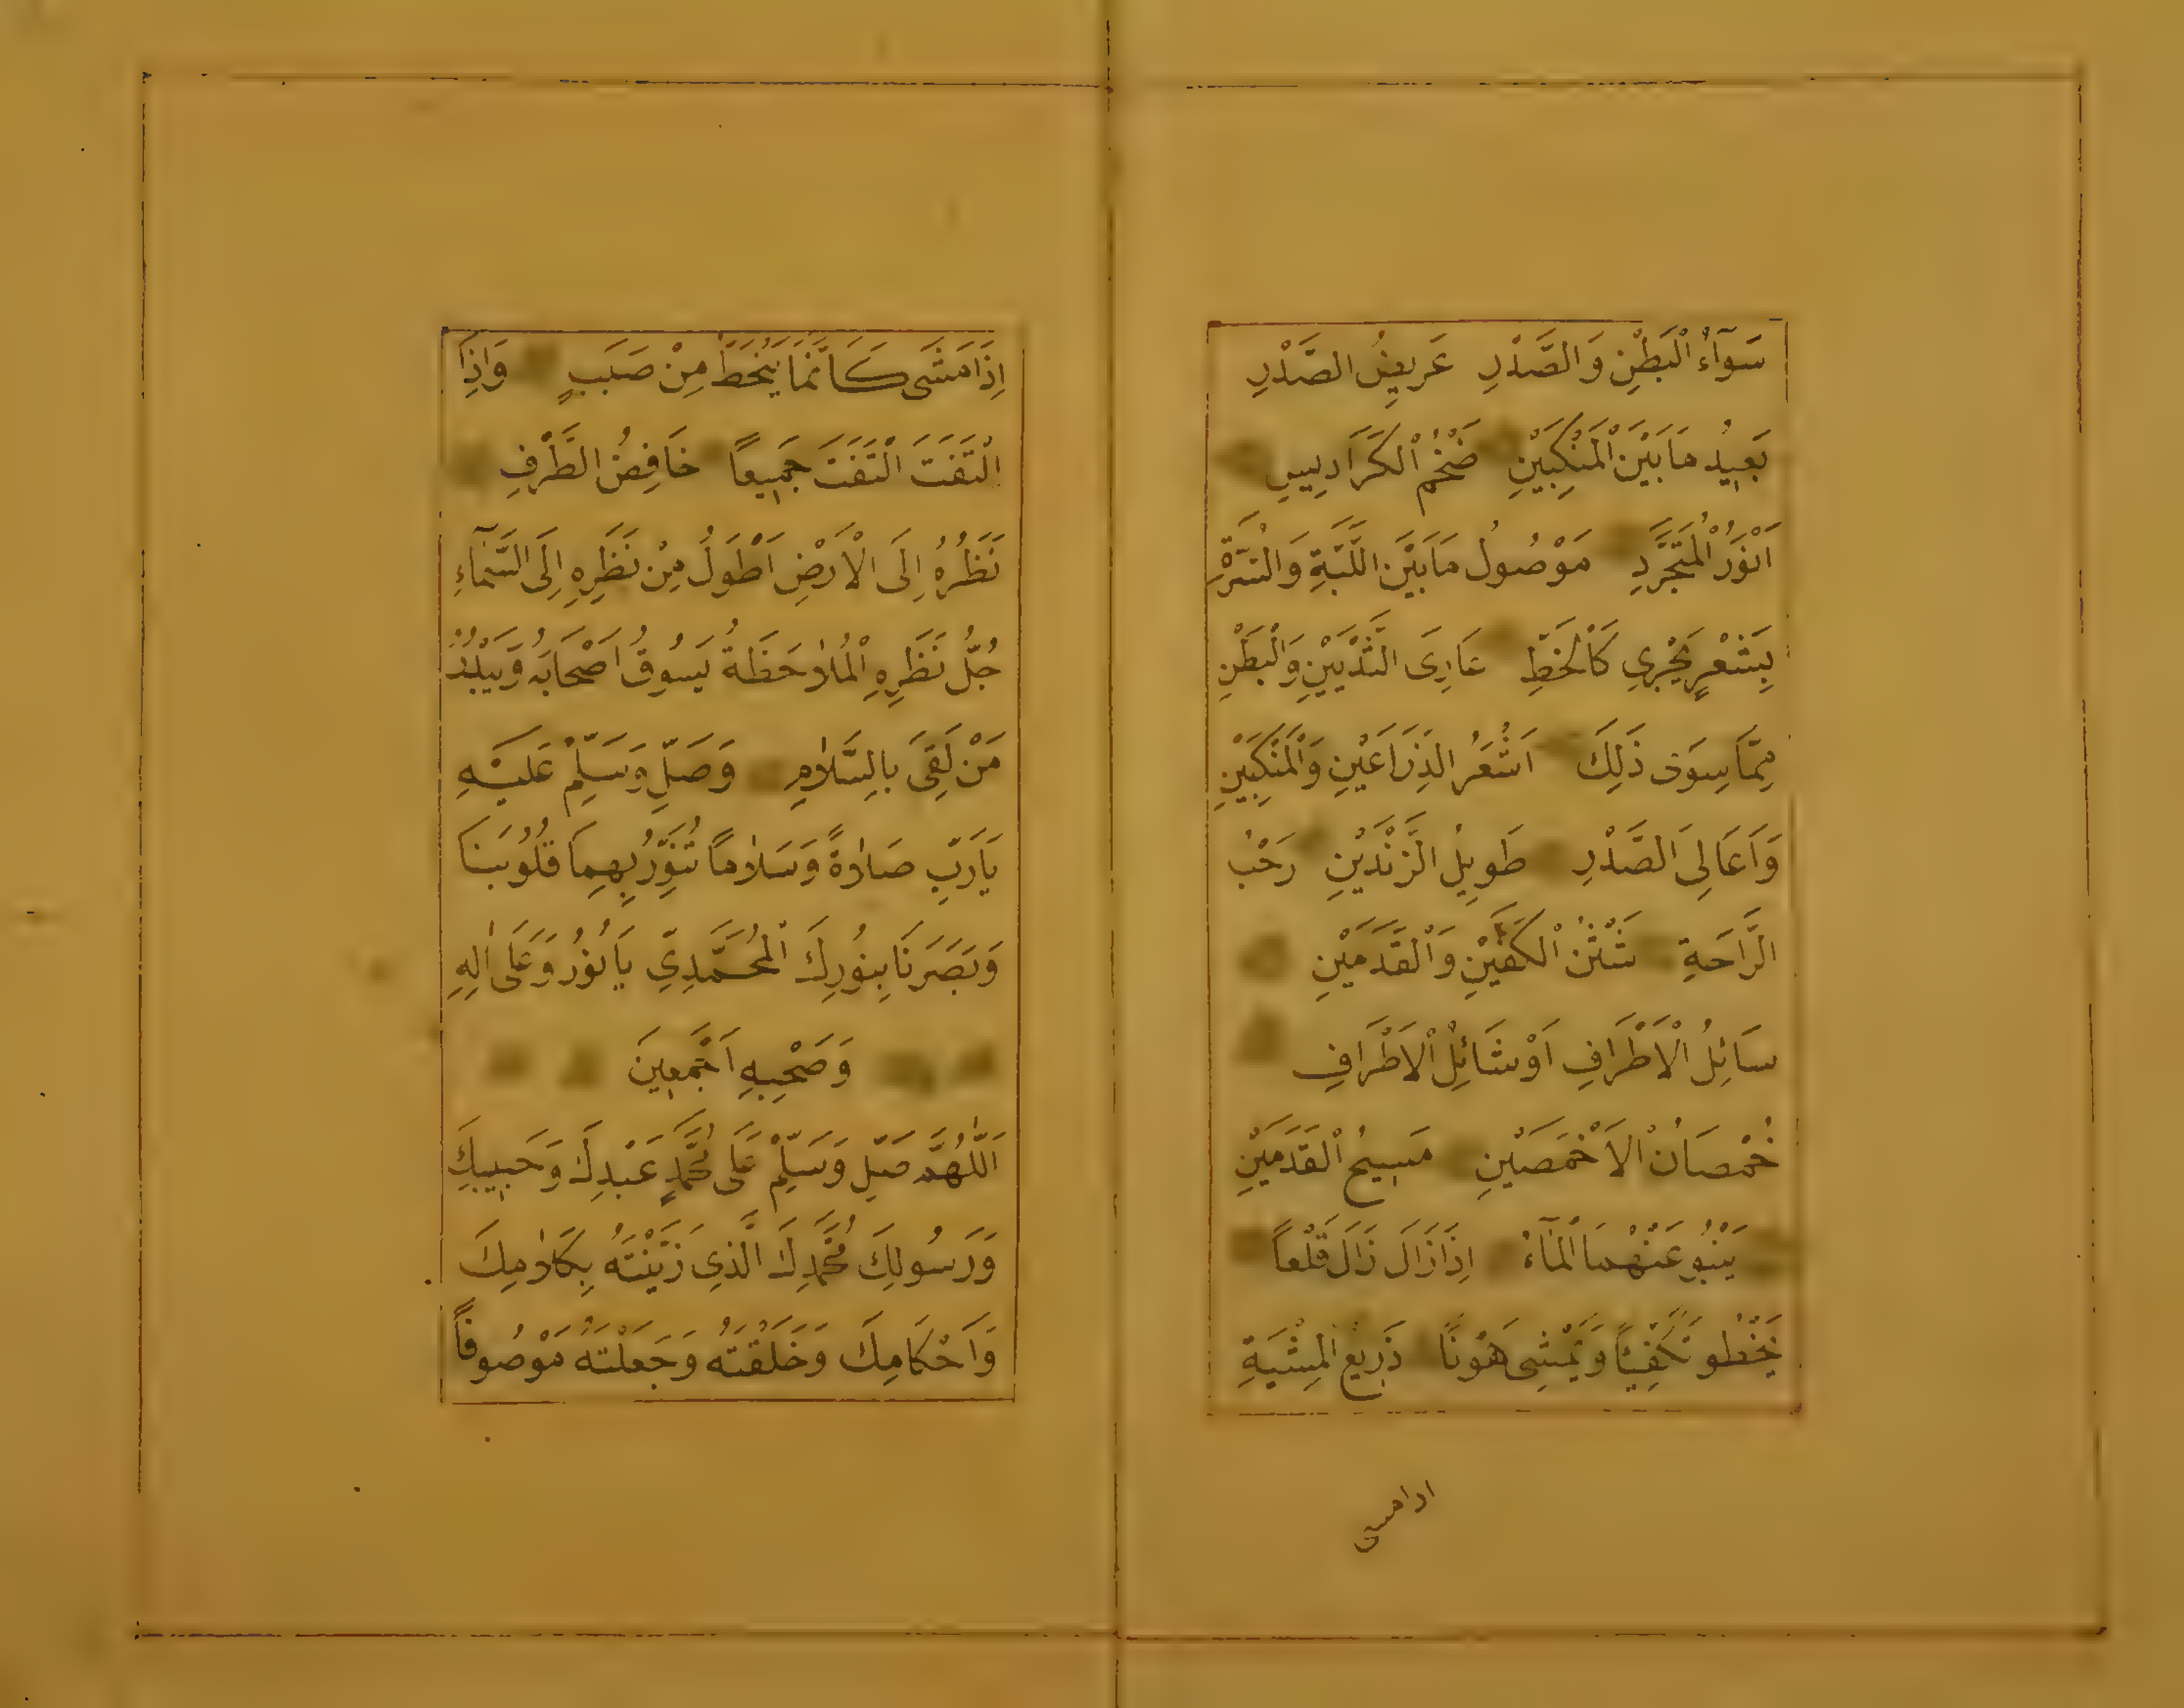 سَوَآءُ الْبَطْنِ وَالصَّدْرِ عَرِيضُ الصَّدْرِ
بَعِيدُ مَابَيْنَ الْمَنْكِبَيْنِ ضَخْمُ الْكَرَادِيسِ
اَنْوَرُ الْمُتَجَرَّدِ مَوْصُولُ مَابَيْنَ اللَّبَّةِ وَالسُّرَّةِ
بِشَعْرٍ يَجْرِي كَالْخَطِّ عَارِىَ الثَّدْيَيْنِ وَالْبَطْنِ
مِمَّا سِوَى ذَلِكَ اَشْعَرُ الذِّرَاعَيْنِ وَالْمَنْكِبَيْنِ
وَاَعَالِىَ الصَّدْرِ طَوِيلُ الزَّنْدَيْنِ رَحْبُ
الرَّاحَةِ شَثْنُ الْكَفَّيْنِ وَالْقَدَمَيْنِ
سَائِلُ الْاَطْرَافِ اَوْ شَائِلُ الْاَطْرَافِ
خُمْصَانُ الْاَخْمَصَيْنِ مَسِيحُ الْقَدَمَيْنِ
يَنْبُو عَنْهُمَا الْمَآءُ اِذَا زَالَ زَالَ قَلْعاً
يَخْطُو تَكَفِّيًا وَيَمْشِى هَوْنًا ذَرِيعُ الْمِشْيَةِ
اذا مشى
اِذَا مَشَى كَاَنَّمَا يَنْحَطُّ مِنْ صَبَبٍ وَاِذَا
الْتَفَتَ الْتَفَتَ جَمِيعاً خَافِضُ الطَّرْفِ
نَظَرُهُ اِلَى الْاَرْضِ اَطْوَلُ مِنْ نَظَرِهِ اِلَى السَّمَآءِ
جُلُّ نَظَرِهِ الْمُلاَحَظَةُ يَسُوقُ اَصْحَابَهُ وَيَبْدُرُ
مَنْ لَقِىَ بِالسَّلاَمِ وَصَلِّ وَسَلِّمْ عَلَيْهِ
يَارَبِّ صَلاَةً وَسَلاَماً تُنَوِّرُ بِهِمَا قُلُوبَنَا
وَبَصَرَنَا بِنُورِكَ الْمُحَمَّدِيِّ يَا نُورُ وَعَلَى اٰلِهِ
وَصَحْبِهِ اَجْمَعِينَ
اَللّٰهُمَّ صَلِّ وَسَلِّمْ عَلَى مُحَمَّدٍ عَبْدِكَ وَحَبِيبِكَ
وَرَسُولِكَ مُحَمَّدِكَ الَّذِي زَيَّنْتَهُ بِكَلاَمِكَ
وَاَحْكَامِكَ وَخَلَقْتَهُ وَجَعَلْتَهُ مَوْصُوفاً